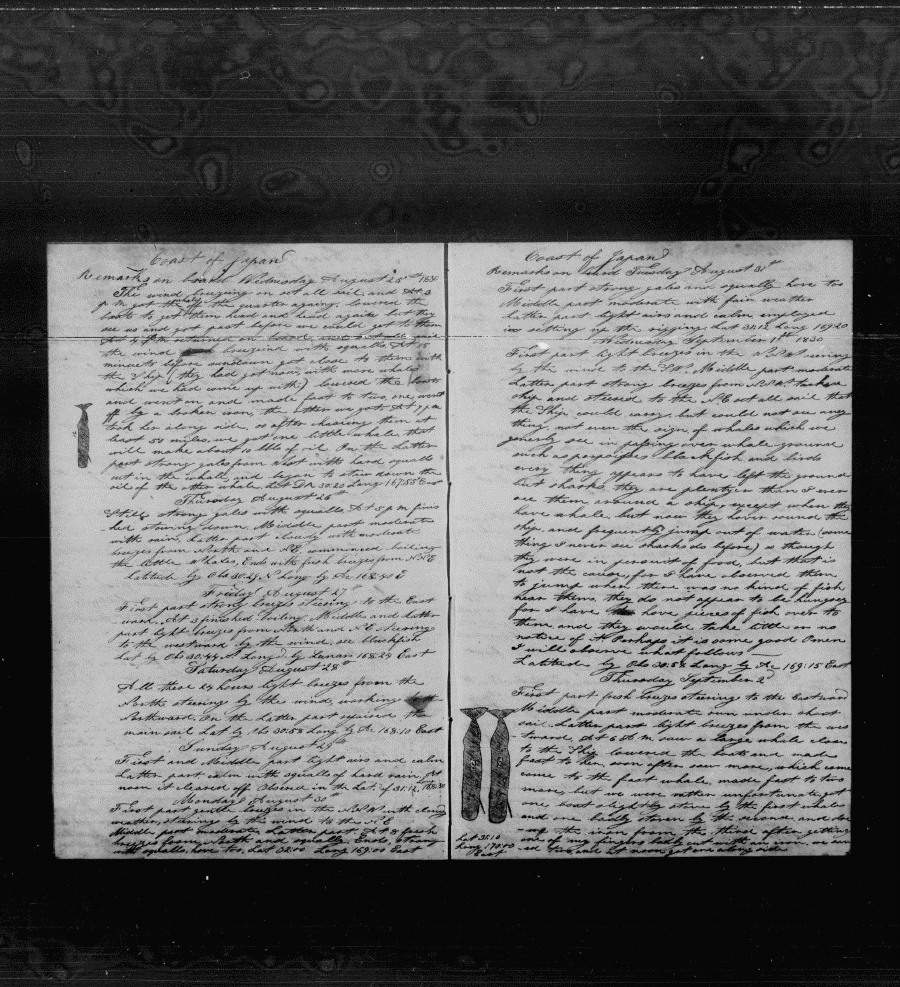 Coast of Japan
Remarks on board Wednesday August 25th 1830
The wind breezing on set all sail and At 3
P M got the off the quarter againg, lowered the
boats to got them head and head again but they
see us and got past before we could got to them
At 4 P.M. returned on board
the wind breezeind with squalls, At 20
minuets before sundown got close to them with
the Ship (they had got now, with more whales
which we had come up with) lowered the boats
and went on and made fast to two, one, went
off by a broken iron, the other we got, At 7 p m
took her along side, so after chaseing them at
least 50 miles, we got one little whale, that
will make about 10 bbls of oil. On the Latter
part strong gales from West with hard squalls
cut in the whale, and begun to stow down the
oil of the other whale, Lat DR 30:20 Long 167:55 East
Thursday August 26th
Still strong gales with squalls, At 5 p m finis
hed stowing down, Middle part moderate
with rain, Latter part cloudy with moderate
breezes from North and NE, commenced boiling
the little Whales, Ends with fresh breezes from NNE
latitude by Obs 30:29 N Long by Ac 168:40 E
Friday August 27th
First part strong breezes steering to the East
ward, At 3 finished boiling, Middle and latter
part light breezes from North and N E Steering
to the westward by the wind, see blackfish
Lat by Obs 30:44 N Long by Lunar 168:24 East
Saturday August 28th
All these 24 hours light breezes from the
North steering by the wind, working
Northward, On the Latter part repaired the
main sail Lat by Obs 30:58 Long by Ac 168:10 East
Sunday August 29th
First and Middle part light airs and calm
Latter part calm with squalls of hard rain, At
noon it cleared off Observed in the Lat of 31:12, 168:30
Monday August 30
First part gentle breezes in the NNW with cloudy
weather, steering by the wind to the N E
Middle part moderate, Latter part, At 8 fresh
breezes from North and squally, Ends, strong
with squalls, hove too, Lat 32:00 Long 169:00 East
Coast of Japan
Remarks on board Tuesday August 31st
First part strong gales and squally hove too
Middle part moderate with fair weather
Latter part light airs and calm employed
in setting up the rigging Lat 31:12 Long 169:20
Wednesday September 1st 1830
First part light breezes in the steering
by the wind to the Middle part moderate
Latter part strong breezes from
ship and steered to the N E set all sail that
the Ship could carry, but could not see any
thing, not even the sign, of whales which we
generly see in passing over whale ground
such as porpoises, blackfish and birds
every thing appears to have left the ground
but sharks, they are plentyer than I ever
see them around a ship, except when they
have whale, but now they hover round the
ship, and frequently jump out of water (some
thing I never see sharks do before) as though
they were in persuit of food, but that is
not the cause, for I have observed them
to jump when there was no kind of fish
near them, they do not appear to be hungry
for I have hove pieces of fish over to
them and they would take little or no
notice of it Perhaps it is some good Omen
I will observe what follows
Latitude by Obs 30:58 Long by Ac 169:15 East
Thursday September 2d
First part fresh breezes steering to the Eastward
Middle part moderate run under short
sail, Latter part light breezes from the wes
tward, At 6 A M saw a large whale close
to the Ship lowered the boats and made
fast to her, soon after saw more, which came
came to the fast whale, made fast to two
more, but we were rather unfortunate, got
one, boat slightly stove by the first whales
and one badly stoven by the second, and dr
up the iron from the third after getting
one of my fingers badly cut with an iron, we
ed two, and at noon got one along side
Lat 31:10
Long 170:00
East